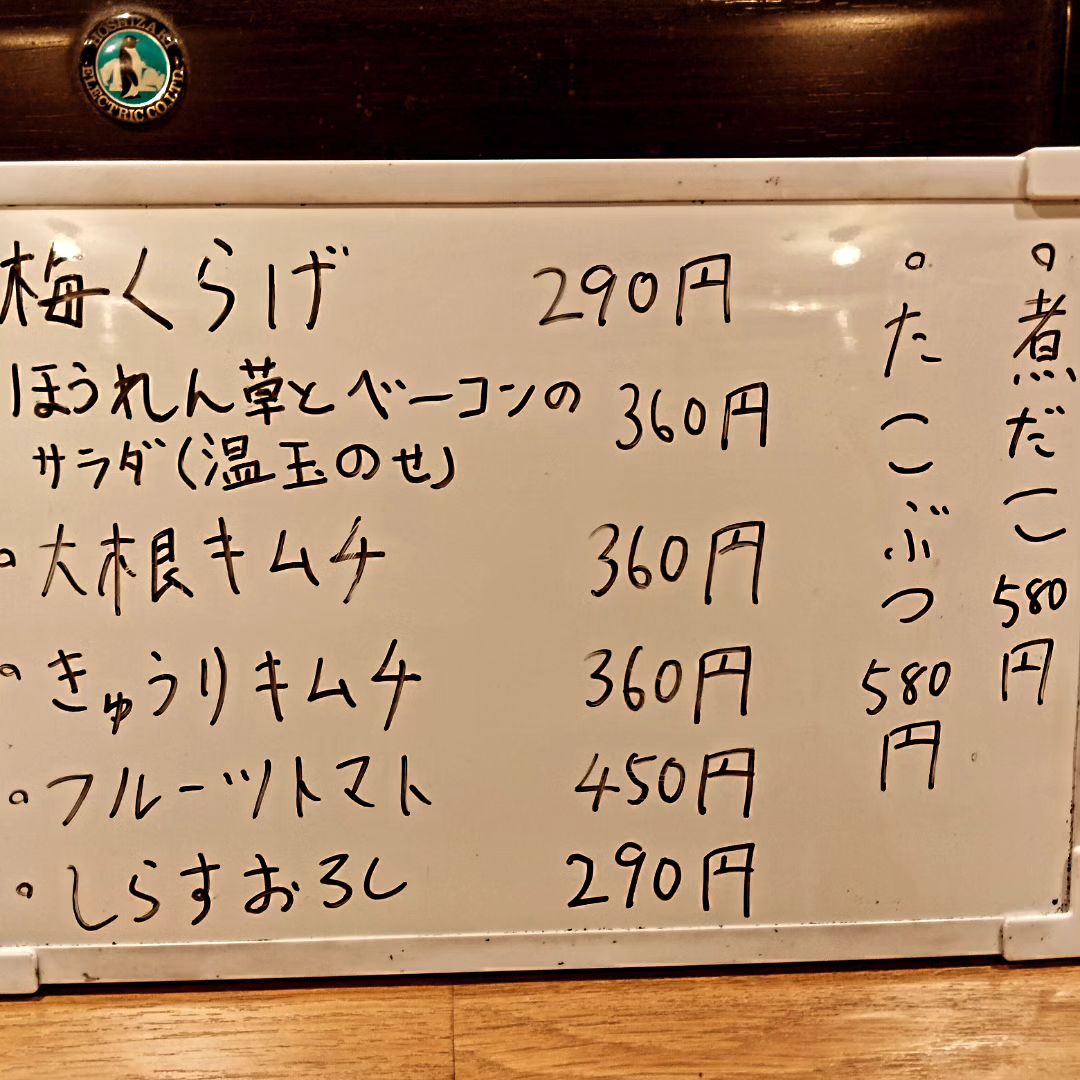 HOSHIZAKI ELECTRIC CO.LTD.
梅くらげ 290円
ほうれん草とベーコンの 360円
サラダ(温玉のせ)
。大根キムチ 360円
。きゅうりキムチ 360円
。フルーツトマト 450円
。しらすおろし 290円
。煮だこ 580円
。たこぶつ 580円